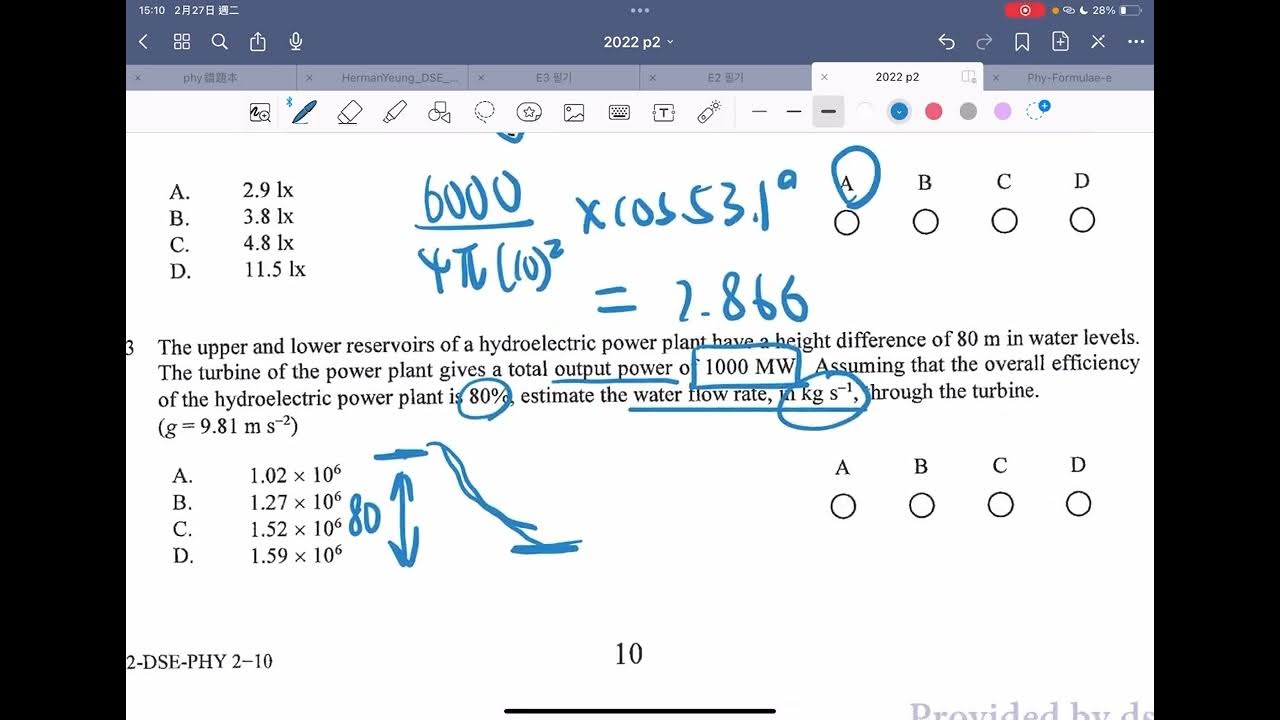 15:10 2月27日 週二
28%
2022 p2
phy錯題本
HermanYeung_DSE_...
E3 필기
E2 필기
2022 p2
Phy-Formulae-e
A. 2.9 lx
B. 3.8 lx
C. 4.8 lx
D. 11.5 lx
6000
4π(10)²
x cos 53.1°
= 2.866
A B C D
3 The upper and lower reservoirs of a hydroelectric power plant have a height difference of 80 m in water levels.
The turbine of the power plant gives a total output power of 1000 MW. Assuming that the overall efficiency
of the hydroelectric power plant is 80%, estimate the water flow rate, in kg s⁻¹, through the turbine.
(g = 9.81 m s⁻²)
A. 1.02 × 10⁶
B. 1.27 × 10⁶
C. 1.52 × 10⁶
D. 1.59 × 10⁶
80
A B C D
2-DSE-PHY 2–10
10
Provided by ds